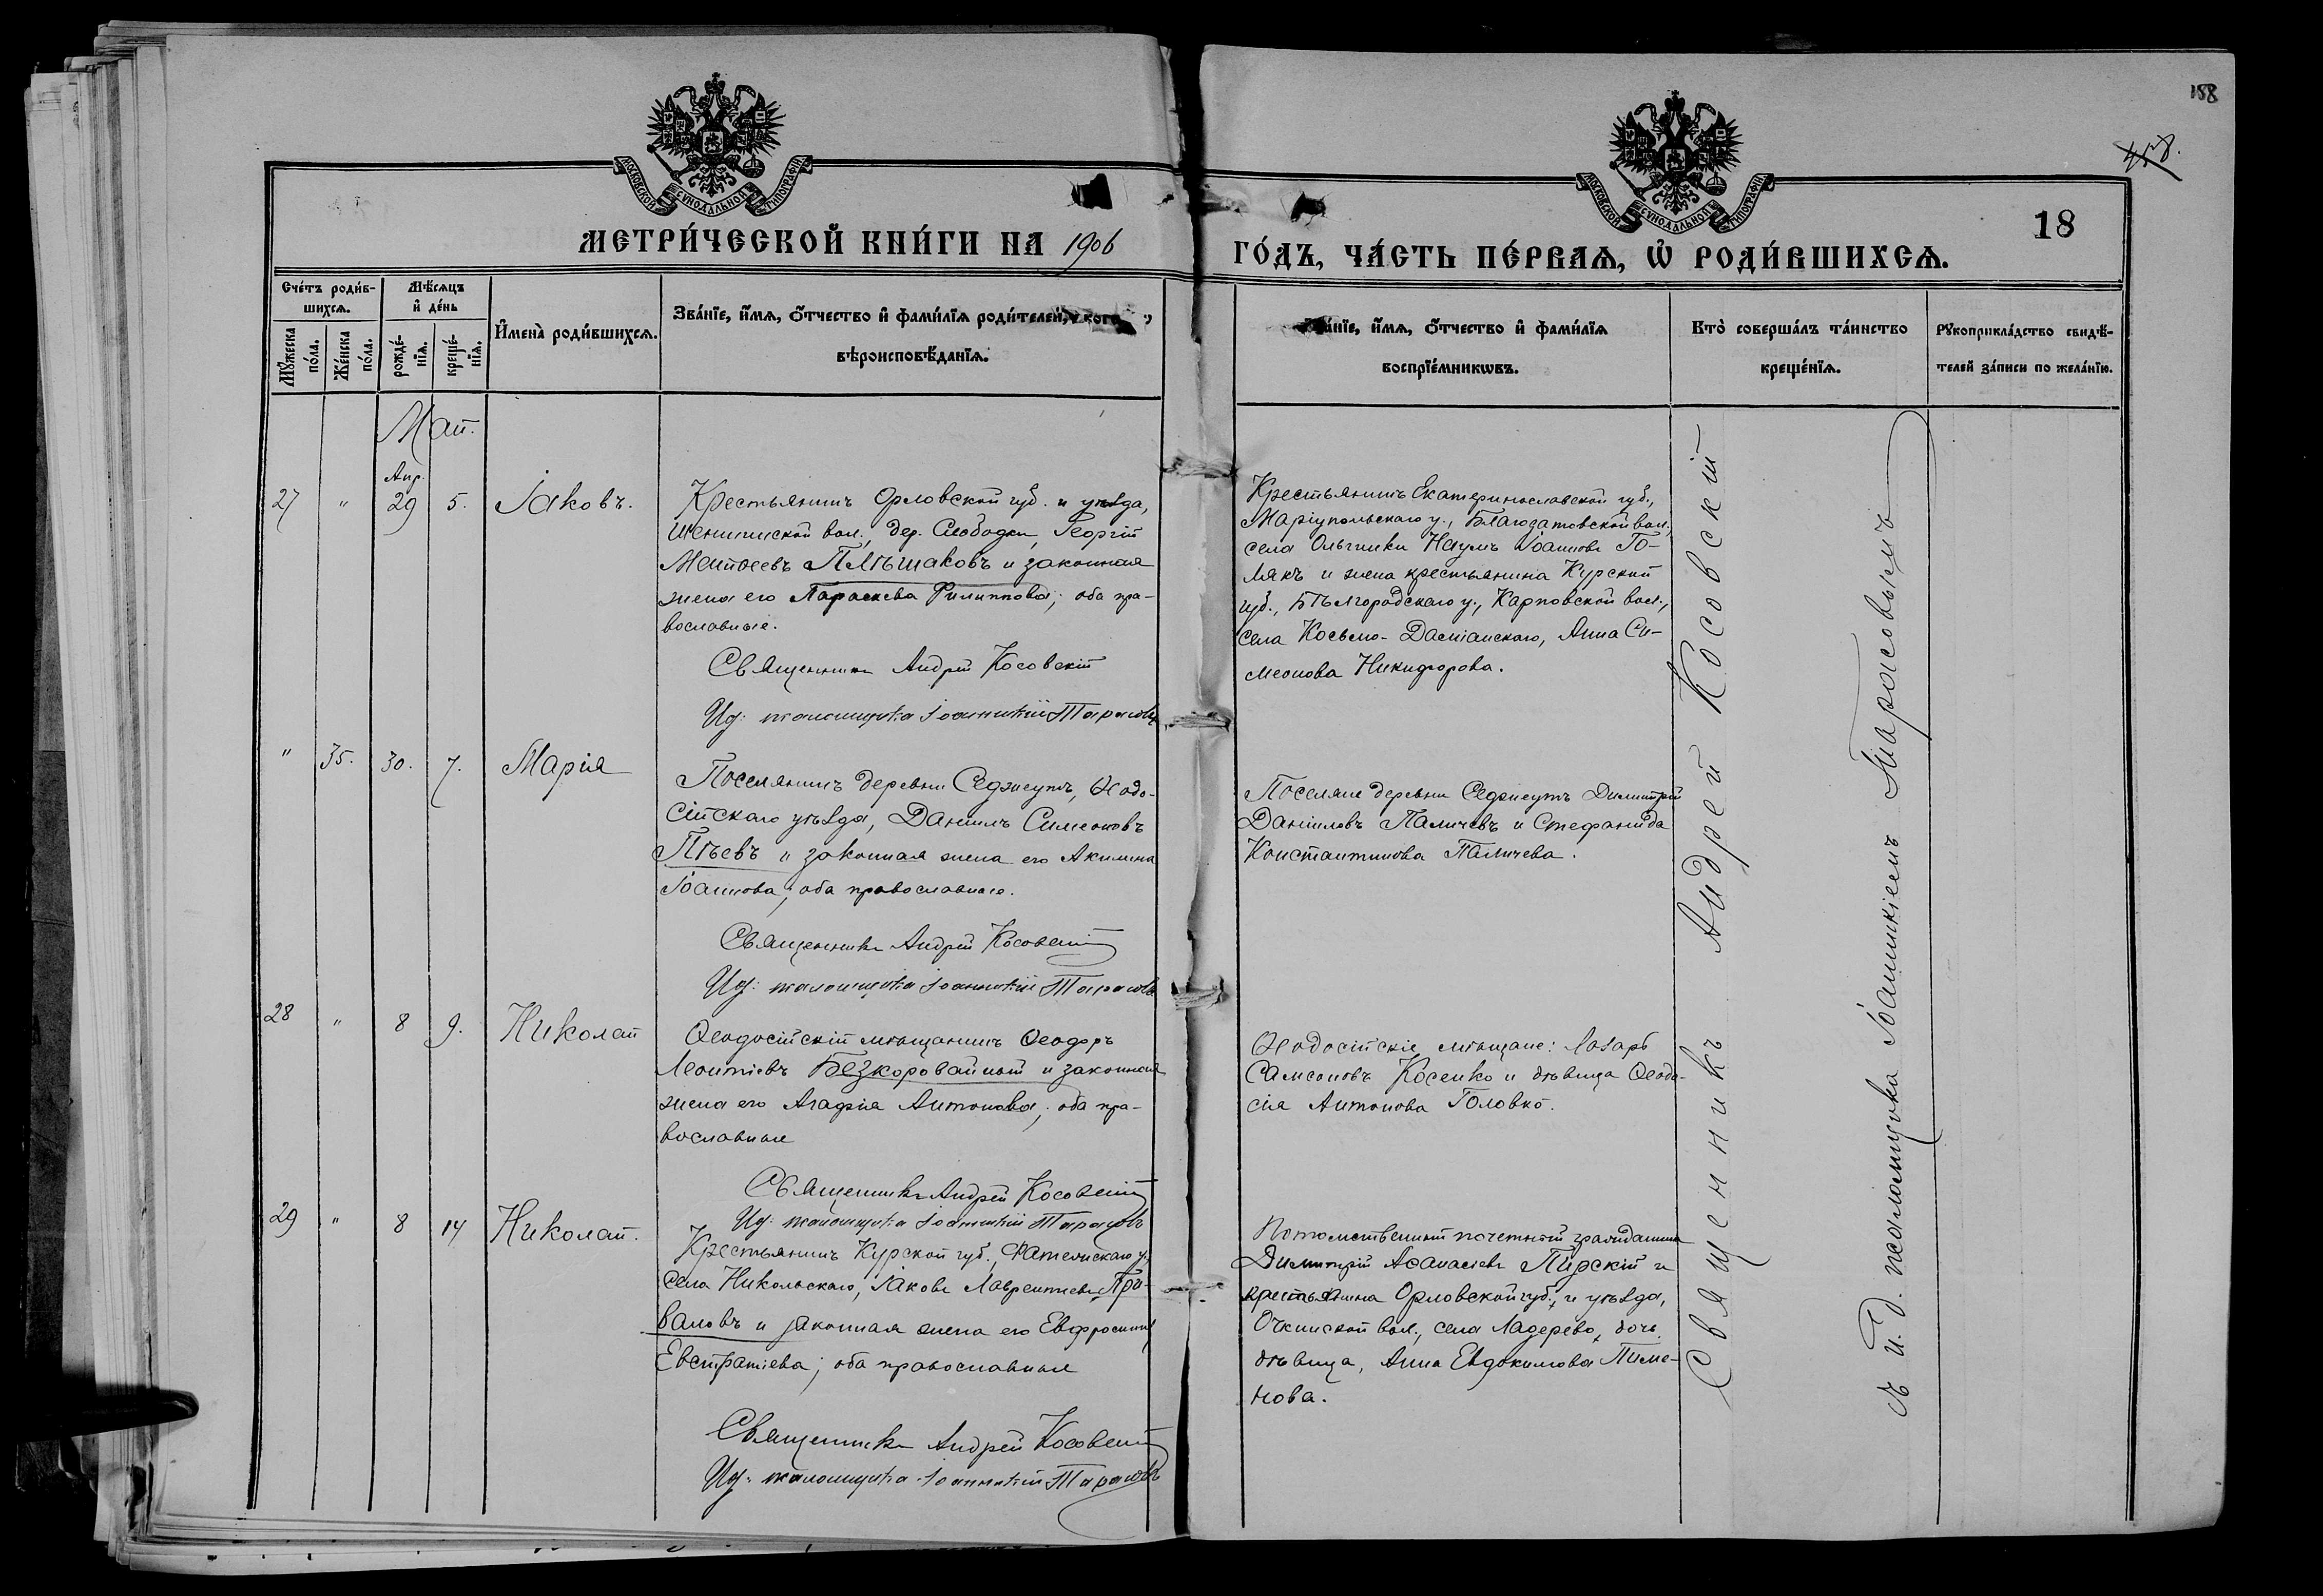 158
458.
18
МОСКОВСКОЙ СѴНОДАЛЬНОЙ ТИПОГРАФІИ
МОСКОВСКОЙ СѴНОДАЛЬНОЙ ТИПОГРАФІИ
МЕТРИ́ЧЕСКОЙ КНИ́ГИ НА 1906
ГО́ДЪ, ЧА́СТЬ ПЕ́РВАѦ, Ѡ҆ РОДИ́ВШИХСѦ.
Сче́тъ роди́в-
шихсѧ.
Мꙋ́жеска
по́ла.
Же́нска
по́ла.
Мѣ́сѧцъ
и҆ де́нь
рожде́-
нїѧ.
креще́-
нїѧ.
И҆мена̀ роди́вшихсѧ.
Зва́нїе, и҆́мѧ, ѻ҆́тчество и҆ фами́лїѧ роди́телей,
вѣроисповѣ́данїѧ.
Зва́нїе, и҆́мѧ, ѻ҆́тчество и҆ фами́лїѧ
воспрїе́мникѡвъ.
Кто̀ соверша́лъ та́инство
креще́нїѧ.
Рꙋкоприкла́дство свидѣ́-
телей за́писи по жела́нїю.
Май.
Апр.
27 " 29 5. Іаковъ.
Крестьянинъ Орловской губ. и уѣзда,
вол., дер. Слободки, Георгій
Матѳеевъ Плѣшаковъ и законная
жена его Параскева Филиппова; оба пра-
вославные.
Священникъ Андрей Косовскій
Ид: псаломщика Іоанникій Тарасовъ
Крестьянинъ Екатеринославской губ.,
Маріупольскаго у., Благодатовской вол.,
села Ольгинки Наумъ Іоанновъ Го-
лякъ и жена крестьянина Курской
губ., Бѣлгородскаго у., Карповской вол.,
села Косьмо-Даміанскаго, Анна Си-
меонова Никифорова.
" 35. 30. 7. Марія
Поселянинъ деревни Седжеутъ, Ѳеодо-
сійскаго уѣзда, Даніилъ Симеоновъ
Пѣевъ и законная жена его Акилина
Іоаннова; оба православные.
Священникъ Андрей Косовскій
Ид: псаломщика Іоанникій Тарасовъ
Поселяне деревни Седжеутъ Димитрій
Даніиловъ Паличевъ и Стефанида
Константинова Паличева.
28 " 8 9. Николай
Ѳеодосійскій мѣщанинъ Ѳеодоръ
Леонтіевъ Безкоровайный и законная
жена его Агафія Антонова; оба пра-
вославные
Священникъ Андрей Косовскій
Ид: псаломщика Іоанникій Тарасовъ
Ѳеодосійскіе мѣщане: Лазарь
Самсоновъ Косенко и дѣвица Ѳеодо-
сія Антонова Головко.
29 " 8 14 Николай.
Крестьянинъ Курской губ., Фатежскаго у.
села Никольскаго, Іаковъ Лаврентіевъ Про-
валовъ и законная жена его Евфросинія
Евстратіева; оба православные
Священникъ Андрей Косовскій
Ид: псаломщика Іоанникій Тарасовъ
Потомственный почетный гражданинъ
Димитрій Аѳанасіевъ Пирскій и
крестьянина Орловской губ., и уѣзда,
вол., села Ладерево, дочь
дѣвица, Анна Евдокимова Пиме-
нова.
Священникъ Андрей Косовскій
съ И.д. псаломщика Іоанникіемъ Тарасовымъ